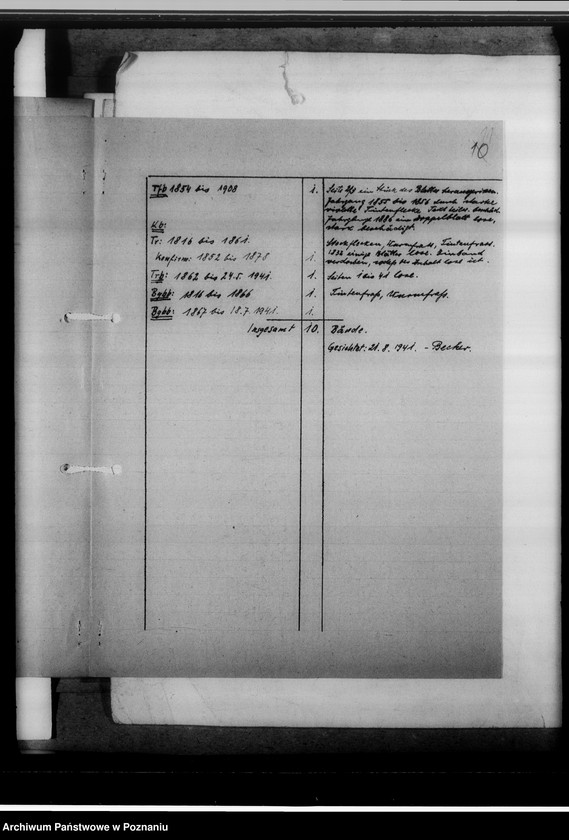 10
Tfb 1854 bis 1908 1. Seite 28 ein Stück des Blattes herausgerissen.
Jahrgang 1855 bis 1856 durch starke
violette Tintenflecke
Jahrgang 1886 ein Doppelblatt lose,
stark beschädigt.
Kb:
Tr: 1816 bis 1861. Stockflecken, Wurmfraß, Tintenfraß.
Konfirm: 1852 bis 1878 1. einige Blätter lose. Einband
Inhalt lose ist.
Trb: 1862 bis 24.5.1941. 1. Seiten 1 bis 41 lose.
Bgbb: 1816 bis 1866 1. Tintenfraß, Wurmfraß.
Bgbb: 1867 bis 18.7.1941. 1.
Insgesamt 10. Bände.
Gesichtet: 21.8.1941. - Becker.
Archiwum Państwowe w Poznaniu